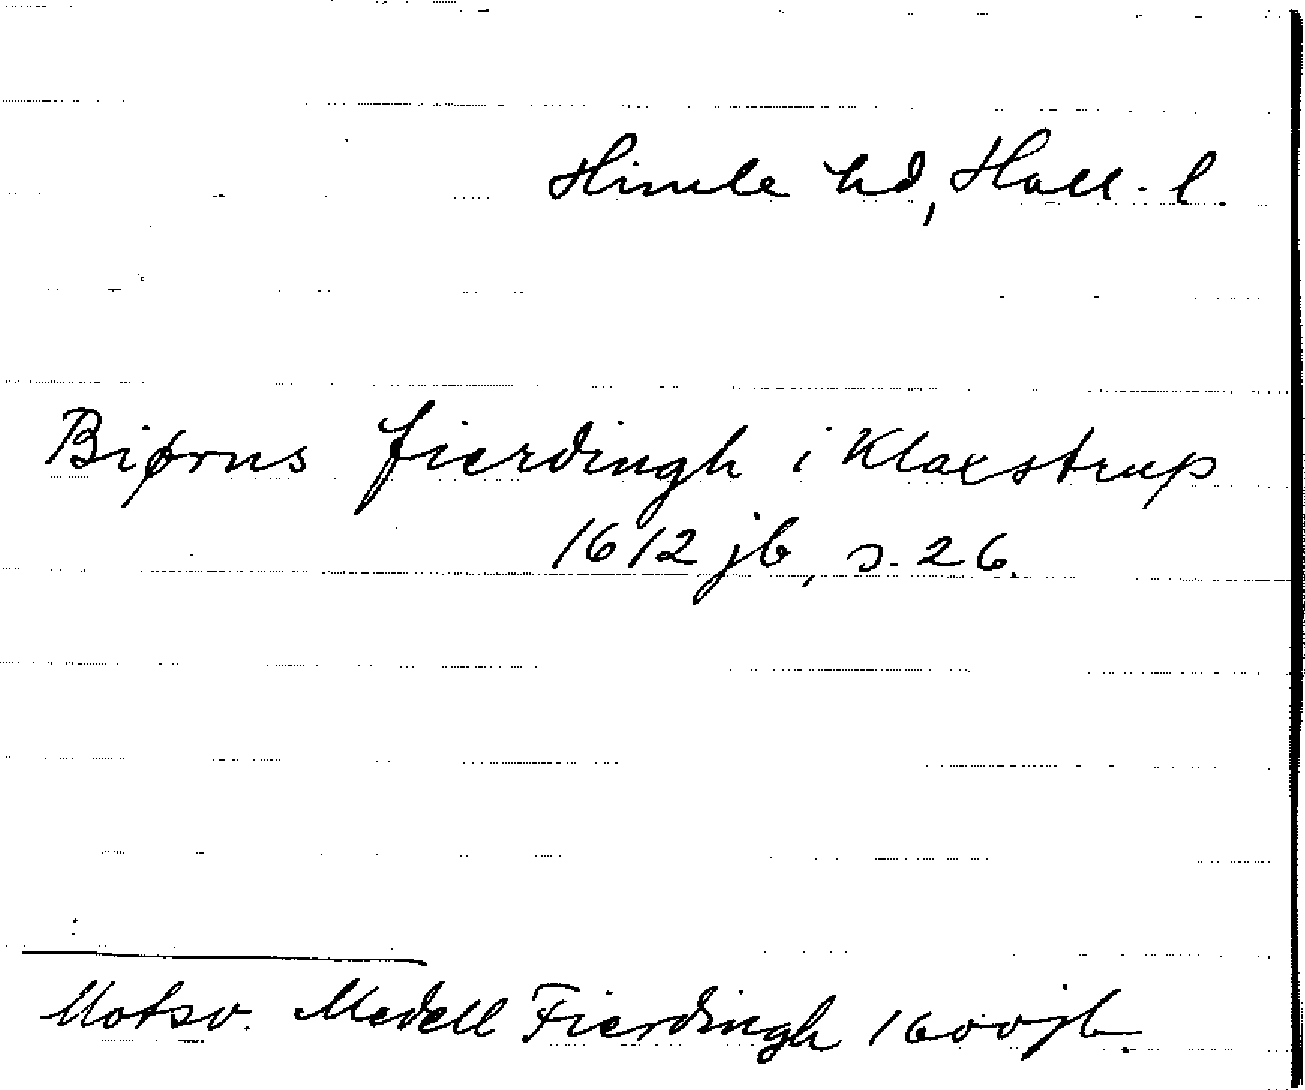 Himle hd, Hall. l.
Biørns fierdingh i Klaxstrup
1612 jb, s. 26.
Motsv. Medell Fierdingh 1600 jb.